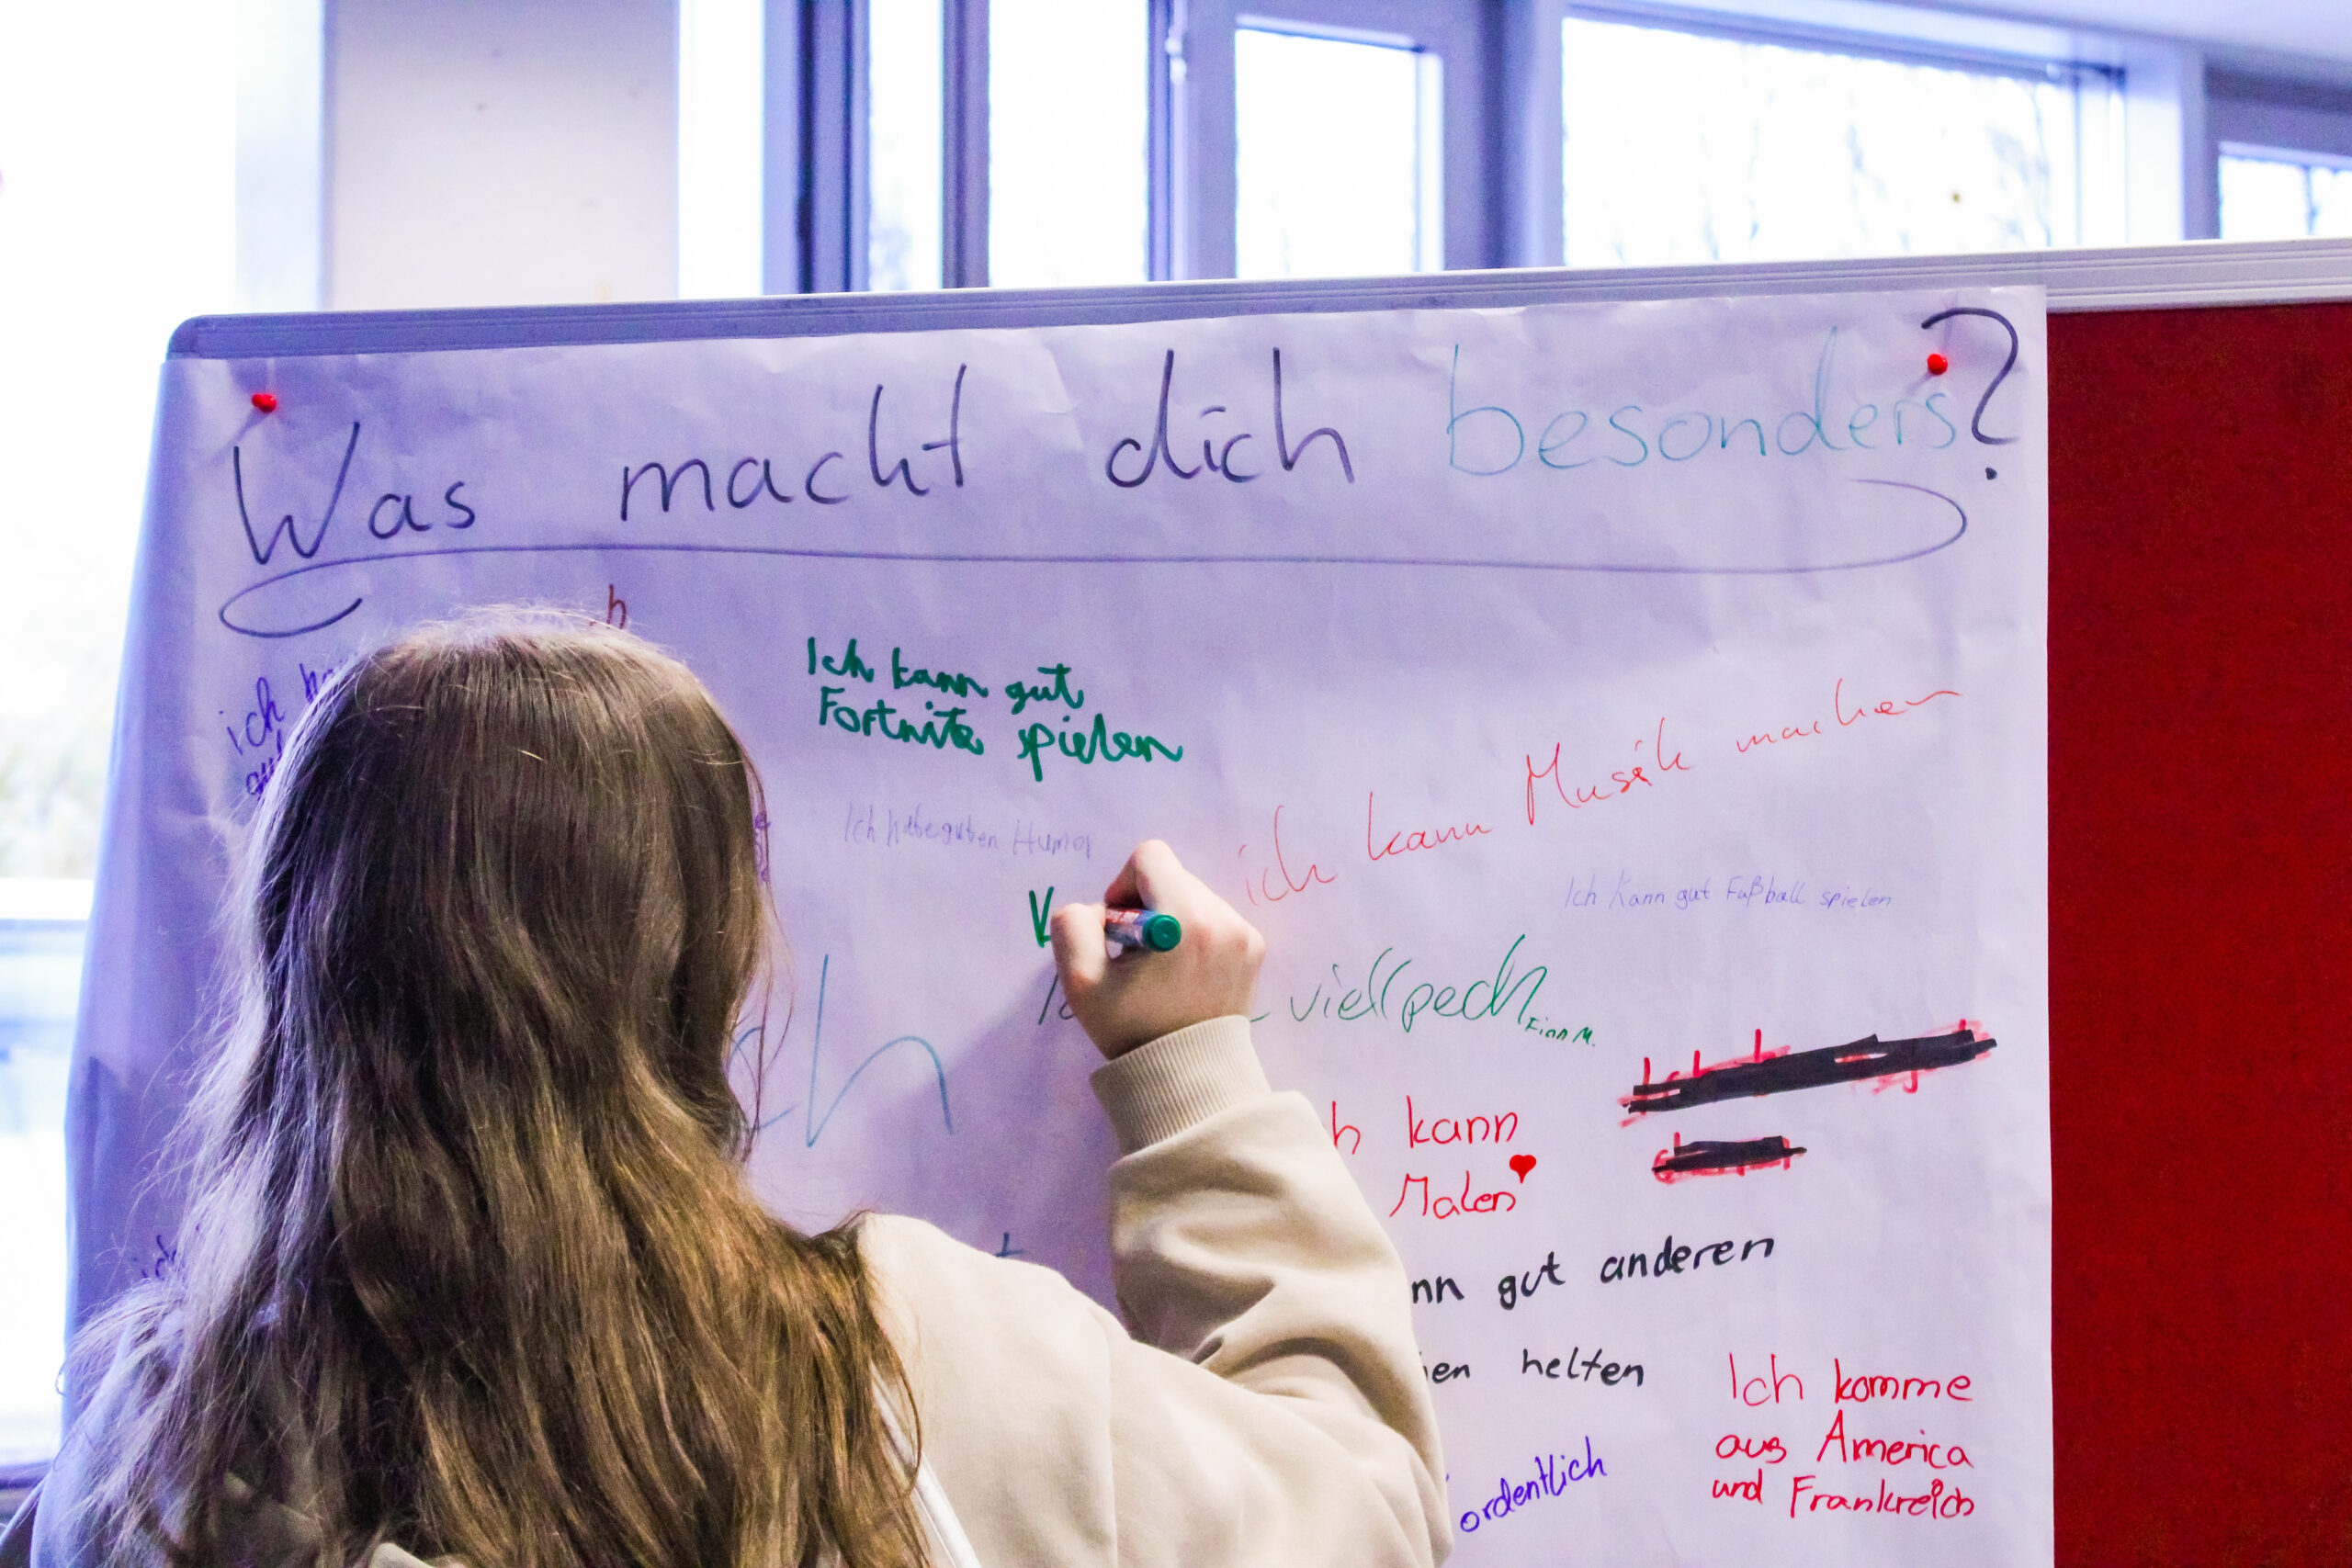 Was macht dich besonders?
ich
Ich kann gut
Fortnite spielen
ich kann Musik machen
Ich habe guten Humor
Ich kann gut Fußball spielen
viell pech Finn M.
kann
Malen
gut anderen
helfen
Ich komme
aus America
und Frankreich
ordentlich